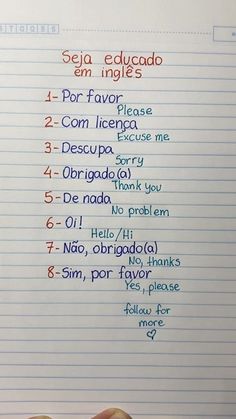 Seja educado
em inglês
1- Por favor
Please
2- Com licença
Excuse me
3- Descupa
Sorry
4- Obrigado(a)
Thank you
5- De nada
No problem
6- Oi!
Hello/Hi
7- Não, obrigado(a)
No, thanks
8- Sim, por favor
Yes, please
follow for
more